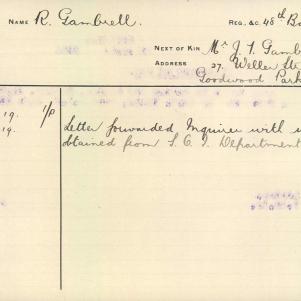 NAME R. Gambrell. REG. &C. 48th B
NEXT OF KIN Mr J. T. Gamb
ADDRESS 27. Weller St
Goodwood Park
19. 1/P
19. Letter forwarded Inquirer with
btained from S. C. I. Department